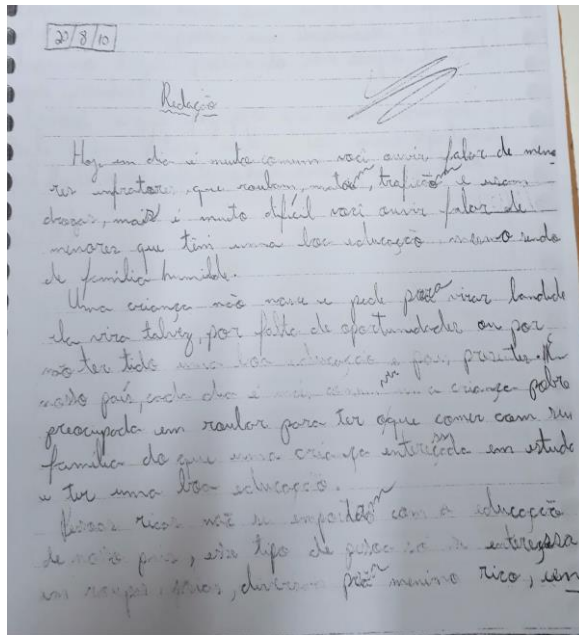 20/8/10
Redação
Hoje em dia é muito comum você ouvir falar de meno
res infratores que roubam, matão, traficão e usam
drogas, mais é muito difícil você ouvir falar de
menores que têm uma boa educação mesmo sendo
de família humilde.
Uma criança não nasce e pede pra virar bandido
ela vira talvez, por falta de oportunidades ou por
não ter tido uma boa educação e pais presentes. N
nosso país, cada dia é mais uma criança pobre
preocupada em roubar para ter oque comer com seu
familia do que uma criança entereçada em estuda
e ter uma boa educação.
Pessoas ricas não se empordão com a educação
de nosso pais, esse tipo de pessoa só se entereçsa
em roupas, diversão pra menino rico, um